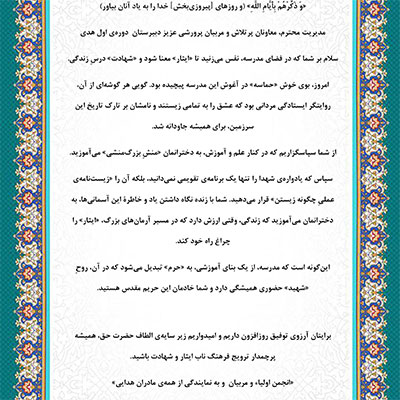 «وَ ذَكِّرْهُمْ بِأَيَّامِ اللَّهِ» (و روزهای [پیروزی‌بخش] خدا را به یاد آنان بیاور)
مدیریت محترم، معاونان پرتلاش و مربیان پرورشی عزیز دبیرستان دوره‌ی اول هدی
سلام بر شما که در فضای مدرسه، نفس می‌زنید تا «ایثار» معنا شود و «شهادت» درس زندگی.
امروز، بوی خوش «حماسه» در آغوش این مدرسه پیچیده بود. گویی هر گوشه‌ای از آن،
روایتگر ایستادگی مردانی بود که عشق را به تمامی زیستند و نامشان بر تارک تاریخ این
سرزمین، برای همیشه جاودانه شد.
از شما سپاسگزاریم که در کنار علم و آموزش، به دخترانمان «منشِ بزرگ‌منشی» می‌آموزید.
سپاس که یادواره‌ی شهدا را تنها یک برنامه‌ی تقویمی نمی‌دانید، بلکه آن را «زیست‌نامه‌ی
عملیِ چگونه زیستن» قرار می‌دهید. شما با زنده نگاه داشتن یاد و خاطرهٔ این آسمانی‌ها، به
دخترانمان می‌آموزید که زندگی، وقتی ارزش دارد که در مسیر آرمان‌های بزرگ، «ایثار» را
چراغ راه خود کند.
این‌گونه است که مدرسه، از یک بنای آموزشی، به «حرم» تبدیل می‌شود که در آن، روحِ
«شهید» حضوری همیشگی دارد و شما خادمان این حریم مقدس هستید.
برایتان آرزوی توفیق روزافزون داریم و امیدواریم زیر سایه‌ی الطاف حضرت حق، همیشه
پرچمدار ترویج فرهنگ ناب ایثار و شهادت باشید.
«انجمن اولیاء و مربیان و به نمایندگی از همه‌ی مادران هدایی»